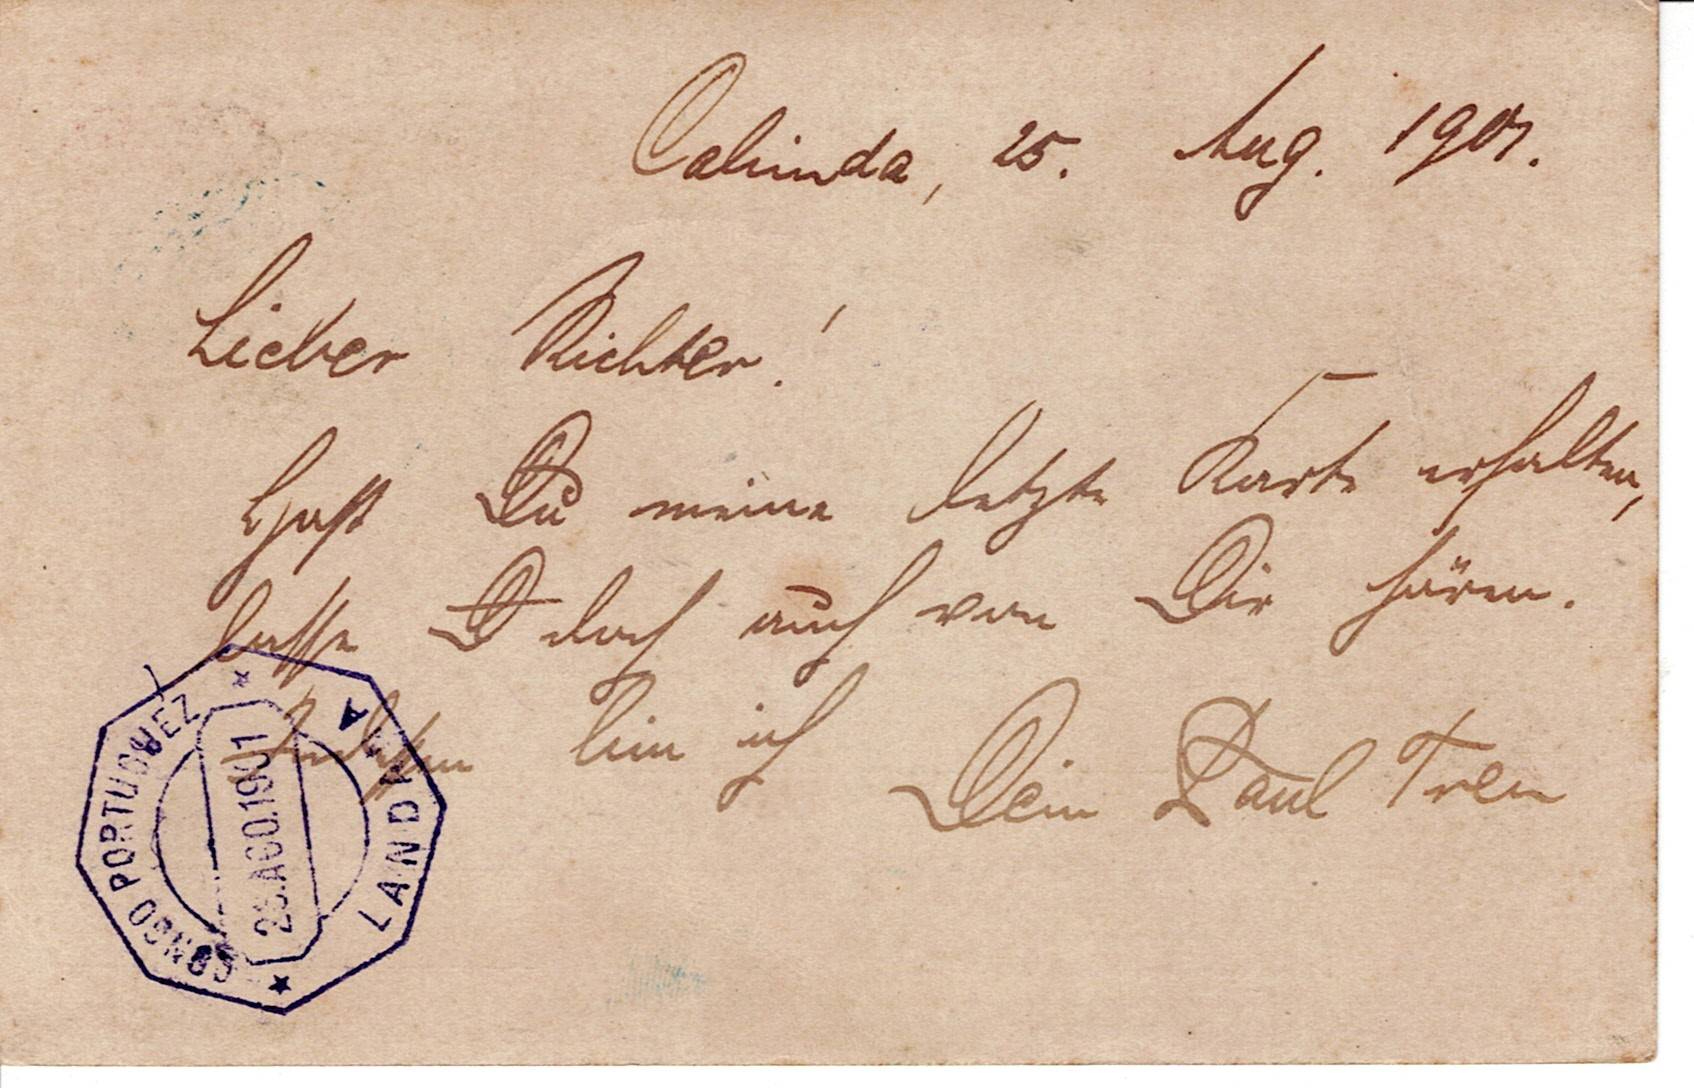 Cabinda, 25. Aug. 1901.
Lieber Richter!
Hast Du meine letzte Karte erhalten,
lasse D doch auch von Dir hören.
bin ich
Dein Paul
CONGO PORTUGUEZ
LANDANA
25.AGO.1901